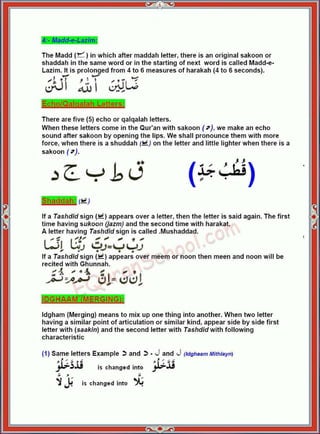 4:- Madd-e-Lazim:
The Madd (ـٓ) in which after maddah letter, there is an original sakoon or
shaddah in the same word or in the starting of next word is called Madd-e-
Lazim. It is prolonged from 4 to 6 measures of harakah (4 to 6 seconds).
Echo/Qalqalah Letters:
There are five (5) echo or qalqalah letters.
When these letters come in the Qur'an with sakoon (ْ), we make an echo
sound after sakoon by opening the lips. We shall pronounce them with more
force, when there is a shuddah (ّ) on the letter and little lighter when there is a
sakoon (ْ).
ق ط ب ج د (قُطُبُ جَدٍّ)
Shaddah: (ّ)
If a Tashdid sign (ّ) appears over a letter, then the letter is said again. The first
time having sukoon (jazm) and the second time with harakat.
A letter having Tashdid sign is called .Mushaddad.
If a Tashdid sign (ّ) appears over meem or noon then meen and noon will be
recited with Ghunnah.
IDGHAAM (MERGING):
Idgham (Merging) means to mix up one thing into another. When two letter
having a similar point of articulation or similar kind, appear side by side first
letter with (saakin) and the second letter with Tashdid with following
characteristic
(1) Same letters Example د and د - ل and ل (Idghaam Mithlayn)
قَدْدَّخَلُوْ is changed into قَدَّخَلُوْ
بَلْ لَّا is changed into بَلَّا
EQuranSchool.com